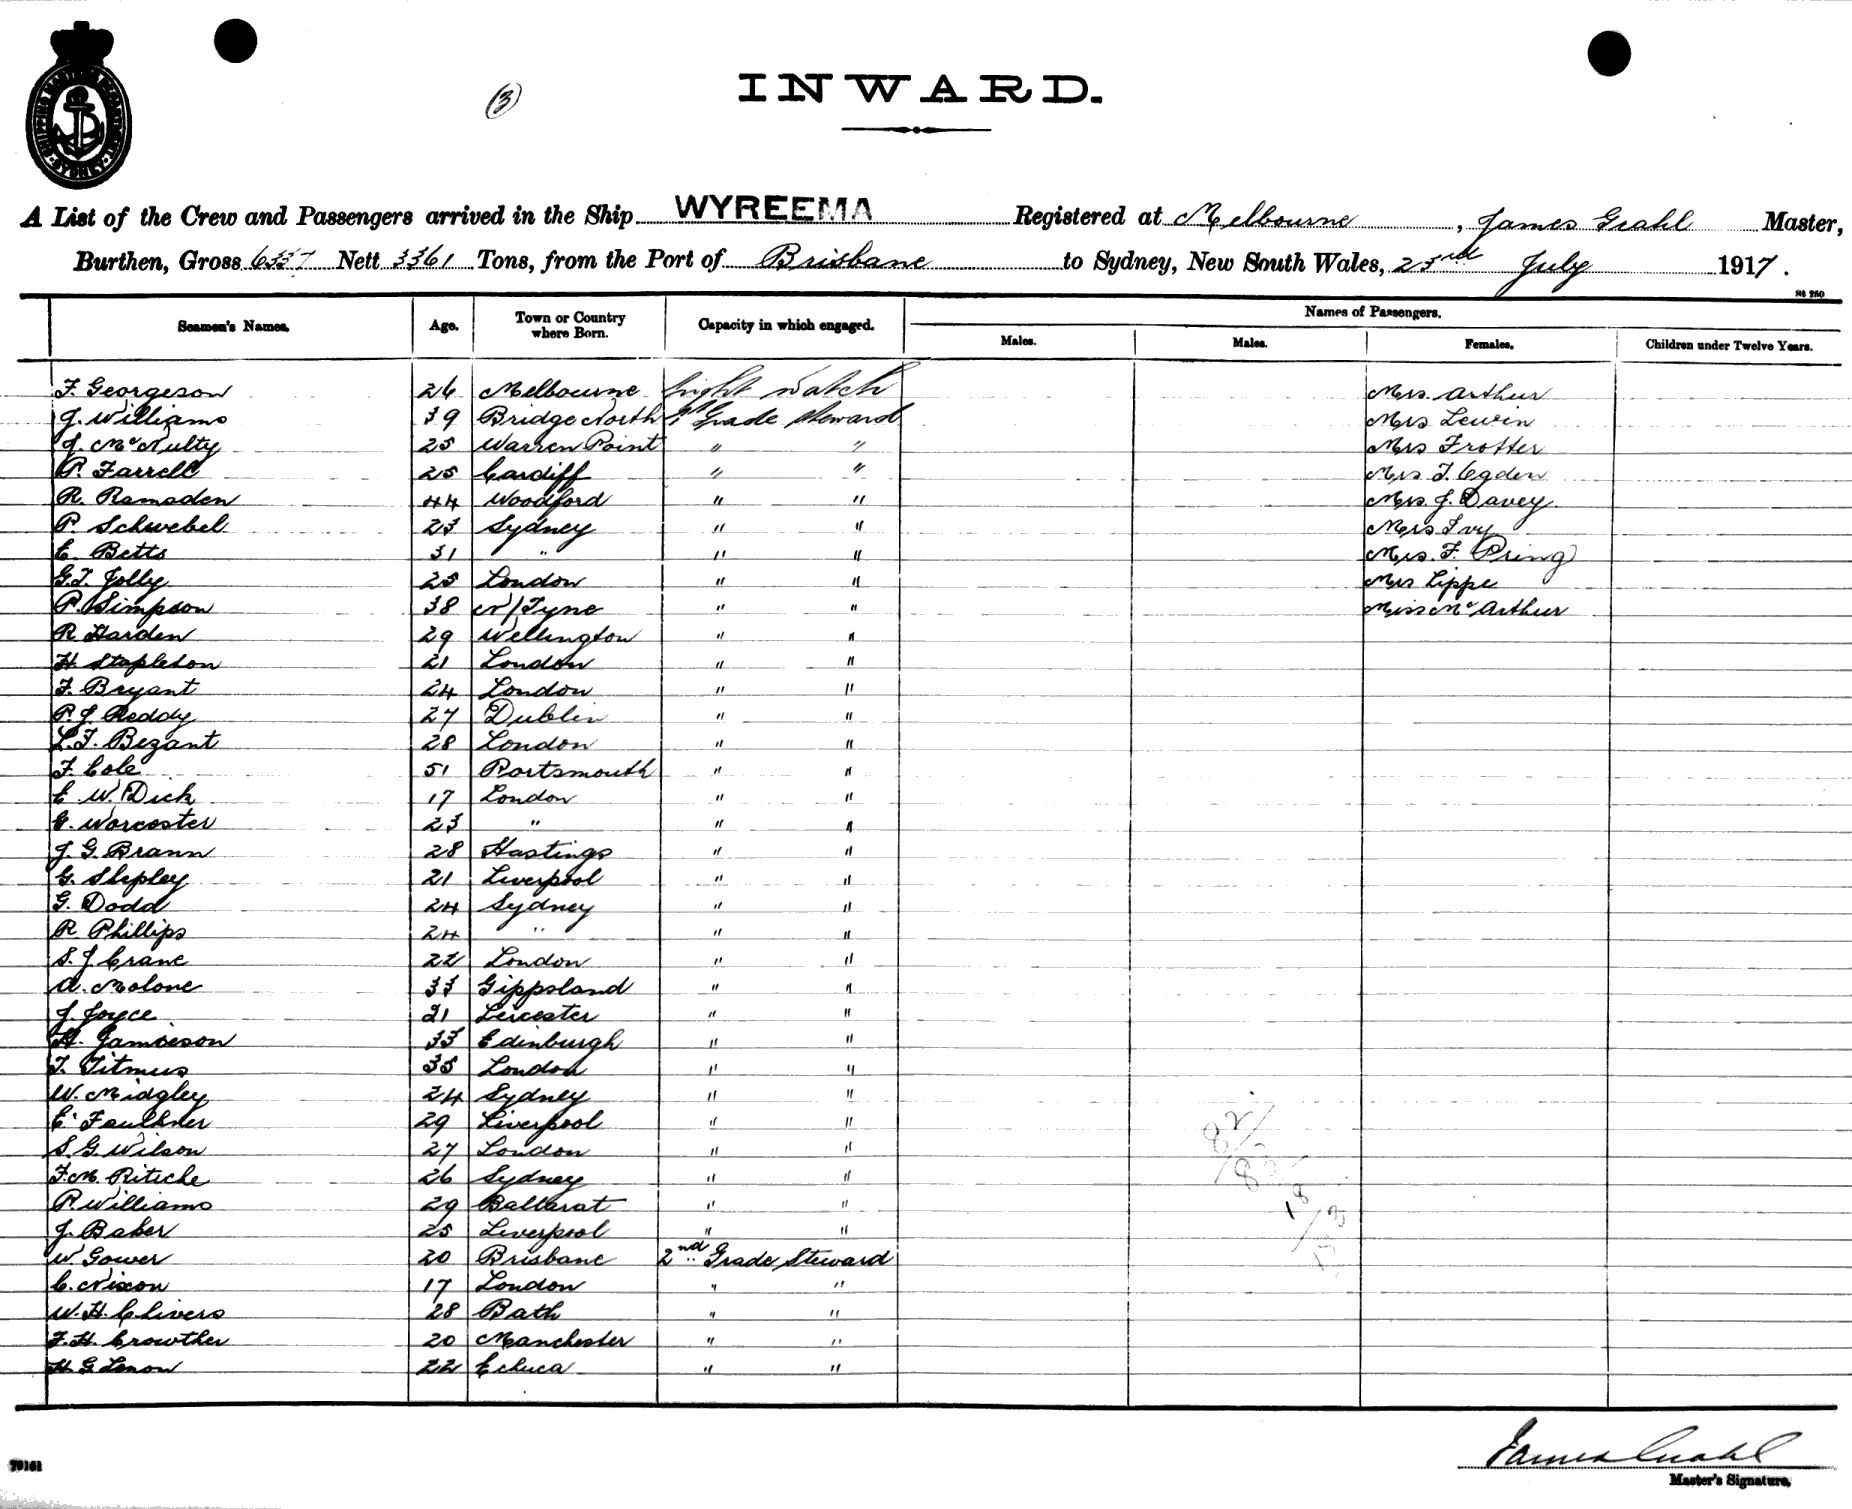 (3)
INWARD.
SHIPPING MASTER'S DEPARTMENT SYDNEY
A List of the Crew and Passengers arrived in the Ship WYREEMA Registered at Melbourne, James Grahl Master,
Burthen, Gross 6337 Nett 3361 Tons, from the Port of Brisbane to Sydney, New South Wales, 23rd July 1917.
Seamen's Names. Age. Town or Country where Born. Capacity in which engaged. Names of Passengers.
Males. Males. Females. Children under Twelve Years.
F. Georgeson 26 Melbourne Night Watch Mrs. Arthur
J. Williams 39 Bridge North 1st Grade Steward Mrs Lewin
J. McNulty 25 Warren Point " " Mrs Trotter
P. Farrell 25 Cardiff " " Mrs T. Ogden
R. Ramsden 44 Woodford " " Mrs. J. Davey
P. Schwebel 23 Sydney " " Mrs Ivy
E. Betts 31 " " " Mrs. F. Pring
G.T. Jolly 25 London " " Mrs Lippe
P. Simpson 38 N/Tyne " " Miss McArthur
R Harden 29 Wellington " "
H. Stapleton 21 London " "
F. Bryant 24 London " "
P.J. Reddy 27 Dublin " "
L.F. Bezant 28 London " "
F. Cole 51 Portsmouth " "
E W. Dick 17 London " "
G. Worcester 23 " " "
J. G. Brann 28 Hastings " "
G. Shepley 21 Liverpool " "
G. Dodd 24 Sydney " "
R. Phillips 24 " " "
S. J. Crane 22 London " "
A. Malone 33 Gippsland " "
J. Joyce 21 Leicester " "
H. Jamieson 33 Edinburgh " "
T. Titmus 35 London " "
W. Midgley 24 Sydney " "
E. Faulkner 29 Liverpool " "
S. G. Wilson 27 London " "
F.M. Ritiche 26 Sydney " "
P. Williams 29 Ballarat " "
J. Baker 25 Liverpool " "
W. Gower 20 Brisbane 2nd Grade Steward
C. Nixon 17 London " "
W. H. Chivers 28 Bath " "
F. H. Crowther 20 Manchester " "
H. G. Lenon 22 Echuca " "
James Grahl
Master's Signature.
79161